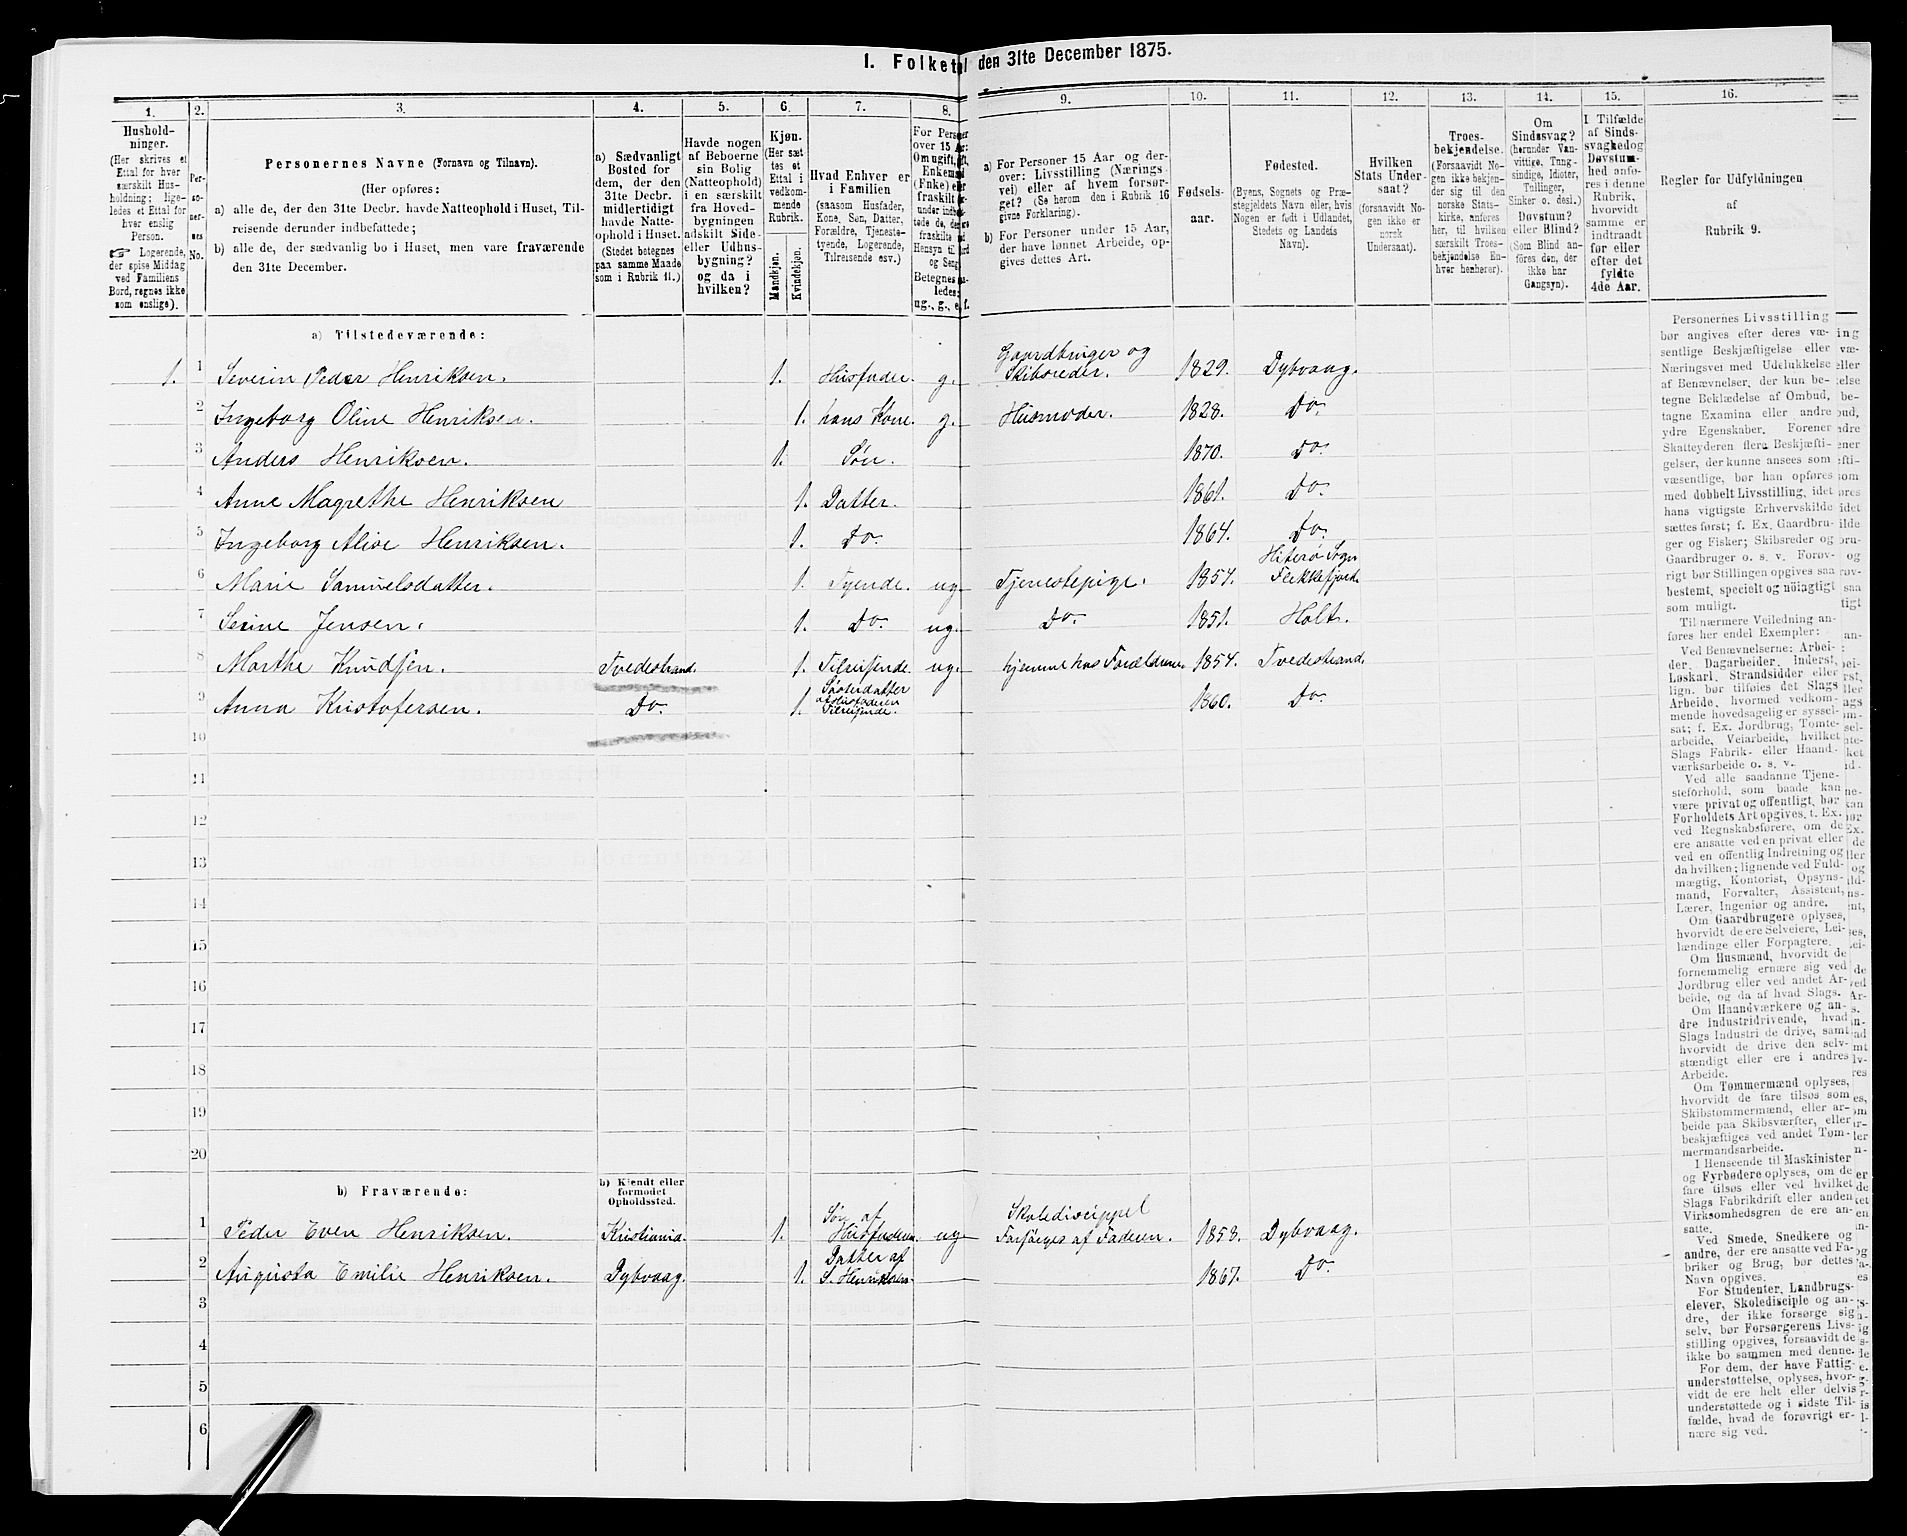 1. Folketal den 31te December 1875.
1. 2. 3. 4. 5. 6. 7. 8. 9. 10. 11. 12. 13. 14. 15. 16.
Hushold-
ninger.
(Her skrives et
Ettal for hver
særskilt Hus-
holdning; lige-
ledes et Ettal for
hver enslig
Person.
☞ Logerende,
der spise Middag
ved Familiens
Bord, regnes ikke
som enslige).
Per-
so-
ner-
nes
No.
Personernes Navne (Fornavn og Tilnavn).
(Her opføres:
a) alle de, der den 31te Decbr. havde Natteophold i Huset, Til-
reisende derunder indbefattede;
b) alle de, der sædvanlig bo i Huset, men vare fraværende
den 31te December.
a) Sædvanligt
Bosted for
dem, der den
31te Decbr.
midlertidigt
havde Natte-
ophold i Huset.
(Stedet betegnes
paa samme Maade
som i Rubrik 11.)
Havde nogen
af Beboerne
sin Bolig
(Natteophold)
i en særskilt
fra Hoved-
bygningen
adskilt Side-
eller Udhus-
bygning?
og da i
hvilken?
Kjøn.
(Her sæt-
tes et
Ettal i
vedkom-
mende
Rubrik.
Mandkjøn.
Kvindekjøn.
Hvad Enhver er
i Familien
(saasom Husfader,
Kone, Søn, Datter,
Forældre, Tjeneste-
tyende, Logerende,
Tilreisende osv.)
For Personer
over 15 Aar:
Om ugift, gift,
Enkemand
(Enke) eller
fraskilt
Betegnes saa-
ledes:
ug., g., e., f.
a) For Personer 15 Aar og der-
over: Livsstilling (Nærings-
vei) eller af hvem forsør-
get? (Se herom den i Rubrik 16
givne Forklaring).
b) For Personer under 15 Aar,
der have lønnet Arbeide, op-
gives dettes Art.
Fødsels-
aar.
Fødested.
(Byens, Sognets og Præ-
stegjeldets Navn eller, hvis
Nogen er født i Udlandet,
Stedets og Landets
Navn).
Hvilken
Stats Under-
saat?
(forsaavidt No-
gen ikke er
norsk
Undersaat).
Troes-
bekjendelse.
(Forsaavidt No-
gen ikke bekjen-
der sig til den
norske Stats-
kirke, anføres
her, til hvilken
særskilt Troes-
bekjendelse En-
hver henhører).
Om
Sindssvag?
(herunder Van-
vittige, Tung-
sindige, Idioter,
Tullinger,
Sinker o. desl.)
Døvstum?
eller Blind?
(Som Blind an-
føres den, der
ikke har
Gangsyn).
I Tilfælde
af Sinds-
svaghed og
Døvstum-
hed anfø-
res i denne
Rubrik,
hvorvidt
samme er
indtraadt
før eller
efter det
fyldte
4de Aar.
Regler for Udfyldningen
af
Rubrik 9.
a) Tilstedeværende:
1. 1 Severin Peder Henriksen. 1. Husfader. g. Gaardbruger og
Skibsreder. 1829. Dybvaag.
2 Ingeborg Oline Henriksen. 1. hans Kone. g. Husmoder. 1828. Do.
3 Anders Henriksen. 1. Søn. 1870. Do.
4 Anne Magrethe Henriksen 1. Datter. 1861. Do.
5 Ingeborg Alise Henriksen. 1. Do. 1864. Do.
6 Marie Samuelsdatter. 1. Tyende. ug. Tjenestepige. 1857. Hiterø Sogn
Flekkefjord.
7 Serine Jensen. 1. Do. ug. Do. 1851. Holt.
8 Marthe Knudsen. Tvedestrand. 1. Tilreisende. ug. hjemme hos Forældrene 1854. Tvedestrand.
9 Anna Kristofersen. Do. 1. Søsterdatter
af Husfaderen
Tilreisende. 1860. Do.
10
11
12
13
14
15
16
17
18
19
20
b) Fraværende:
b) Kjendt eller
formodet
Opholdssted.
1 Peder Even Henriksen. Kristiania. 1. Søn af
Husfaderen. ug Skoledisceippel
Forsørges af Faderen. 1858. Dybvaag.
2 Augusta Emilie Henriksen. Dybvaag. 1. Datter af
S. Henriksen. 1867. Do.
3
4
5
6
Personernes Livsstilling
bør angives efter deres væ-
sentlige Beskjæftigelse eller
Næringsvei med Udelukkelse
af Benævnelser, der kun be-
tegne Beklædelse af Ombud,
tagne Examina eller andre
ydre Egenskaber. Forener
Skatteyderen flere Beskjæfti-
gelser, der kunne ansees som
væsentlige, bør han opføres
med dobbelt Livsstilling, idet
hans vigtigste Erhvervskilde
sættes først; f. Ex. Gaardbru-
ger og Fisker; Skibsreder og
Gaardbruger o. s. v. Forøv-
rigt bør Stillingen opgives saa
bestemt, specielt og nøiagtigt
som muligt.
Til nærmere Veiledning an-
føres her endel Exempler:
Ved Benævnelserne: Arbei-
der, Dagarbeider, Inderst,
Løskarl, Strandsidder eller
lign. bør tilføies det Slags
Arbeide, hvormed vedkom-
mende hovedsagelig er syssel-
sat; f. Ex. Jordbrug, Tomte-
arbeide, Veiarbeide, hvilket
Slags Fabrik- eller Haand-
værksarbeide o. s. v.
Ved alle saadanne Tjene-
steforhold, som baade kan
være privat og offentligt, bør
Forholdets Art opgives, t. Ex.
ved Regnskabsførere, om de
ere ansatte ved en privat eller
ved en offentlig Indretning og
da hvilken; lignende ved Fuld-
mægtig, Kontorist, Opsyns-
mand, Forvalter, Assistent,
Lærer, Ingeniør og andre.
Om Gaardbrugere oplyses,
hvorvidt de ere Selveiere, Lei-
lændinge eller Forpagtere.
Om Husmænd, hvorvidt de
fornemmelig ernære sig ved
Jordbrug eller ved andet Ar-
beide, og da af hvad Slags.
Om Haandværkere og an-
dre Industridrivende, hvad
Slags Industri de drive, samt
hvorvidt de drive den selv-
stændigt eller ere i andres
Arbeide.
Om Tømmermænd oplyses,
hvorvidt de fare tilsøs som
Skibstømmermænd, eller ar-
beide paa Skibsværfter, eller
beskjæftiges ved andet Tøm-
mermandsarbeide.
I Henseende til Maskinister
og Fyrbødere oplyses, om de
fare tilsøs eller ved hvilket
Slags Fabrikdrift eller anden
Virksomhedsgren de ere an-
satte.
Ved Smede, Snedkere og
andre, der ere ansatte ved Fa-
briker og Brug, bør dettes
Navn opgives.
For Studenter, Landbrugs-
elever, Skoledisciple og an-
dre, der ikke forsørge sig
selv, bør Forsørgerens Livs-
stilling opgives, forsaavidt de
ikke bo sammen med denne.
For dem, der have Fattig-
understøttelse, oplyses, hvor-
vidt de ere helt eller delvis
understøttede og i sidste Til-
fælde, hvad de forøvrigt er-
nære sig ved.